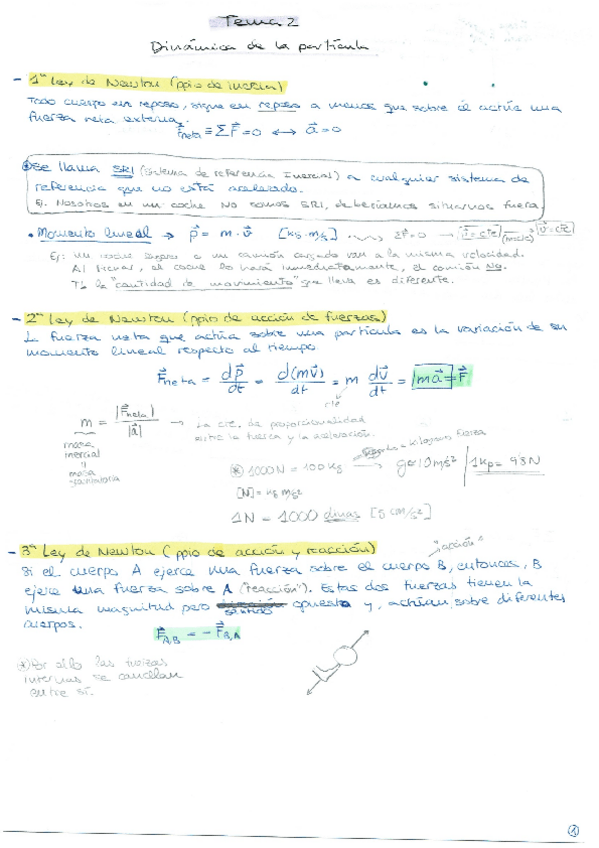 Tema 2
Dinámica de la partícula
- 1ª Ley de Newton (ppio de inercia)
Todo cuerpo en reposo, sigue en reposo a menos que sobre él actúe una
fuerza neta externa.
F⃗neta ≡ ΣF⃗ = 0 ↔ a⃗ = 0
Se llama SRI (Sistema de referencia Inercial) a cualquier sistema de
referencia que no está acelerado.
Ej. Nosotros en un coche no somos SRI, deberíamos situarnos fuera
• Momento lineal → p⃗ = m · v⃗ [kg·m/s] ΣF=0 → p⃗ = cte (m=cte) v⃗ = cte
Ej: un coche y un camión cargado van a la misma velocidad.
Al frenar, el coche lo hará inmediatamente, el camión no.
la "cantidad de movimiento" que lleva es diferente.
- 2ª Ley de Newton (ppio de acción de fuerzas)
L fuerza neta que actúa sobre una partícula es la variación de su
momento lineal respecto al tiempo
F⃗neta = dp⃗/dt = d(mv⃗)/dt = m dv⃗/dt = ma⃗ = F⃗
cte
m = |F⃗neta|/|a⃗| → La cte. de proporcionalidad
entre la fuerza y la aceleración.
masa
inercial
=
masa
gravitatoria
kilogramo fuerza
* 1000N = 100kg → g≈10m/s² 1kp = 9'8N
[N] = kg m/s²
1N = 1000 dinas [g cm/s²]
- 3ª Ley de Newton (ppio de acción y reacción)
"acción"
Si el cuerpo A ejerce una fuerza sobre el cuerpo B, entonces, B
ejerce una fuerza sobre A ("reacción"). Estas dos fuerzas tienen la
misma magnitud pero sentido opuesto y, actúan sobre diferentes
cuerpos.
F⃗A,B = - F⃗B,A
* Por ello las fuerzas
internas se cancelan
entre sí.
1